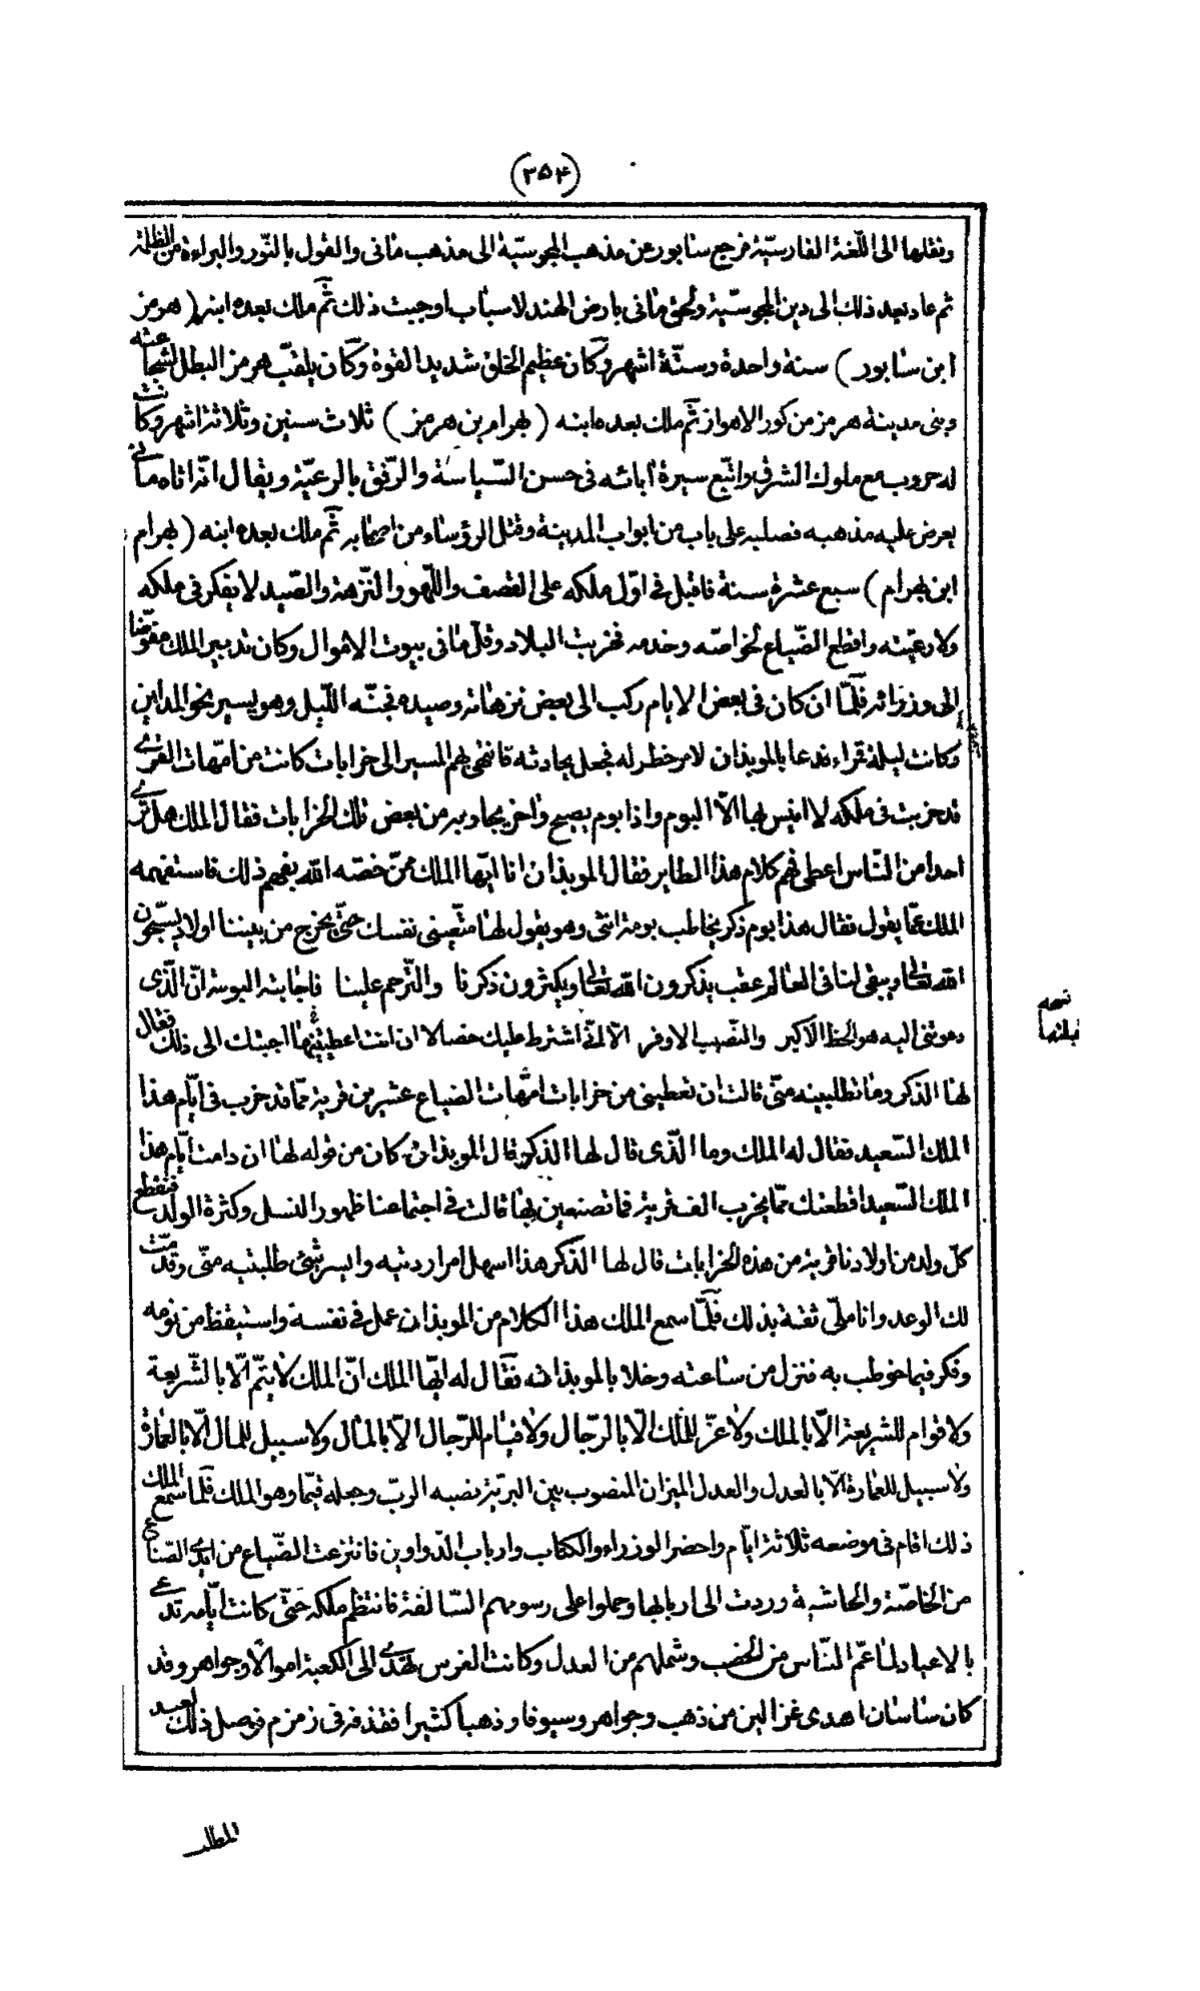 (٣٥٤)
ونقلها الى اللّغة الفارسيّة فرجع سابور عن مذهب المجوسيّة الى مذهب مانى والقول بالنّور والبراءة من الظلمة
ثم عاد بعد ذلك الى دين المجوسيّة ولحق مانى بارض الهند لاسباب اوجبت ذلك ثمّ ملك بعده ابنه (هرمز
ابن سابور) سنة واحدة وستّة اشهر وكان عظيم الخلق شديد القوة وكان يلقب هرمز البطل لشجاعته
وبنى مدينة هرمز من كور الاهواز ثمّ ملك بعده ابنه (بهرام بن هرمز) ثلاث سنين وثلاثة اشهر وكانت
له حروب مع ملوك الشرق واتبع سيرة آبائه فى حسن السّياسة والرّفق بالرعيّة ويقال انّه اتاه مانى
يعرض عليه مذهبه فصلبه على باب من ابواب المدينة وقتل الرؤساء من اصحابه ثمّ ملك بعده ابنه (بهرام
ابن بهرام) سبع عشرة سنة فاقبل فى اوّل ملكه على القصف واللّهو والنّزهة والصّيد لا يفكر فى ملكه
ولا رعيّته واقطع الضّياع لخواصّه وخدمه فخربت البلاد وقلّ مافى بيوت الاموال وكان تدبير الملك مفوّضا
إلى وزرائه فلمّا ان كان فى بعض الايام ركب الى بعض نزهاته وصيده فجنّه اللّيل وهو يسير نحو المداين
وكانت ليلة قمراء فدعا بالموبذان لامر خطر له فجعل يحادثه فانتهى بهم المسير الى خرابات كانت من امّهات القرى
قد خربت فى ملكه لا انيس بها الّا البوم واذا بوم يصيح واخر يجاوبه من بعض تلك الخرابات فقال الملك هل ترى
احدا من النّاس اعطى فهم كلام هذا الطاير فقال الموبذان انا ايّها الملك ممّن خصّه الله بفهم ذلك فاستفهمه
الملك عمّا يقول فقال هذا بوم ذكر يخاطب بومة انثى وهو يقول لها متّعينى نفسك حتّى يخرج من بيننا اولاد يسبّحون
الله تعالى ويبقى لنا فى العالم عقب يذكرون الله تعالى ويكثرون ذكرنا والترحم علينا فاجابته البومة انّ الّذى
دعوتنى اليه هو الحظ الاكبر والنّصيب الاوفر الّا انّى اشترط عليك خصالا ان انت اعطيتنيها اجبتك الى ذلك فقال
لها الذكر وما تطلبينه منّى قالت ان تعطينى من خرابات امّهات الضياع عشرين قرية ممّا قد خرب فى ايّام هذا
الملك السّعيد فقال له الملك وما الّذى قال لها الذكر قال الموبذان كان من قوله لها ان دامت ايّام هذا
الملك السّعيد اقطعتك ممّا يخرب الف قرية فما تصنعين بها قالت فى اجتماعنا ظهور النسل وكثرة الولد فنقطع
كلّ ولد من اولادنا قرية من هذه الخرابات قال لها الذّكر هذا اسهل امر اردتيه وايسر شئ طلبتيه منّى وقدّمت
لك الوعد وانا ملىّ ثقة بذلك فلمّا سمع الملك هذا الكلام من الموبذان عمل فى نفسه واستيقظ من نومه
وفكر فيما خوطب به فنزل من ساعته وخلا بالموبذان فقال له ايّها الملك انّ الملك لا يتمّ الّا بالشّريعة
ولا قوام للشريعة الّا بالملك ولا عزّ للملك الّا بالرّجال ولا قيام للرّجال الّا بالمال ولا سبيل للمال الّا بالعمارة
ولا سبيل للعمارة الّا بالعدل والعدل الميزان المنصوب بين البريّة نصبه الربّ وجعله قيّما وهو الملك فلمّا سمع الملك
ذلك اقام فى موضعه ثلاثة ايّام واحضر الوزراء والكتّاب وارباب الدّواوين فانتزعت الضّياع من ايدى
من الخاصّة والحاشية وردت الى اربابها وحملوا على رسومهم السّالفة فانتظم ملكه حتّى كانت ايّامه تدعى
بالاعياد لما عمّ النّاس من الخصب وشملهم من العدل وكانت الفرس تهدى الى الكعبة اموالا وجواهر وقد
كان ساسان اهدى غزالين من ذهب وجواهر وسيوفا وذهبا كثيرا فقذفه فى زمزم فوصل ذلك لعبد
المطلب